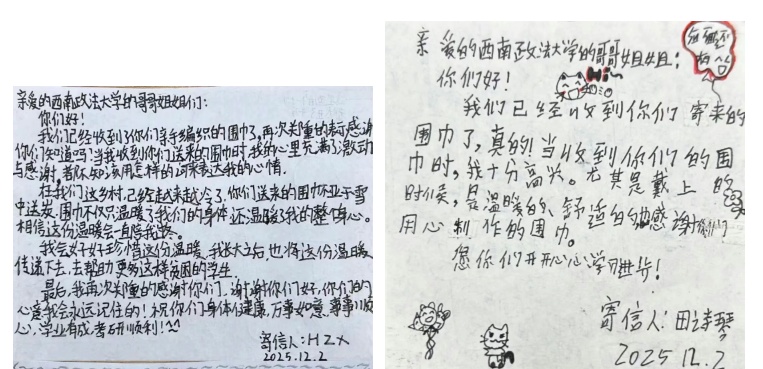 亲爱的西南政法大学的哥哥姐姐们:
你们好!
我们已经收到了你们亲手编织的围巾了,再次关隆重的表示感谢
你们知道吗?当我收到你们送来的围巾时,我的心里充满了激动
与感谢,都不知该用怎样的词来表达我的心情.
在我们这乡村,已经越来越冷了,你们送来的围巾亚于雪
中送炭,围巾不仅只温暖了我们的身体,还温暖了我的整個心。
相信这份温暖会一直陪我
我会好好珍惜这份温暖,我长大后,也将这份温暖
传递下去,去帮助更多这样贫困的学生.
最后,我再次隆重的感谢你们,谢谢你们好,你们的
心意我会永远记住的!祝你们身体健康,万事如意,事事顺
心,学业有成,考研顺利!^^
寄信人:HZX
2025.12.2
亲爱的西南政法大学的哥哥姐姐:
你们好!
Hi~
我们已经收到你们寄来的
围巾了,真的!当收到你们的围
巾时,我十分高兴。尤其是戴上的
时候,是温暖的、舒适的感谢你们
用心制作的围巾。
您你们开开心心学习进步!
寄信人:田诗琴
2025 12.2